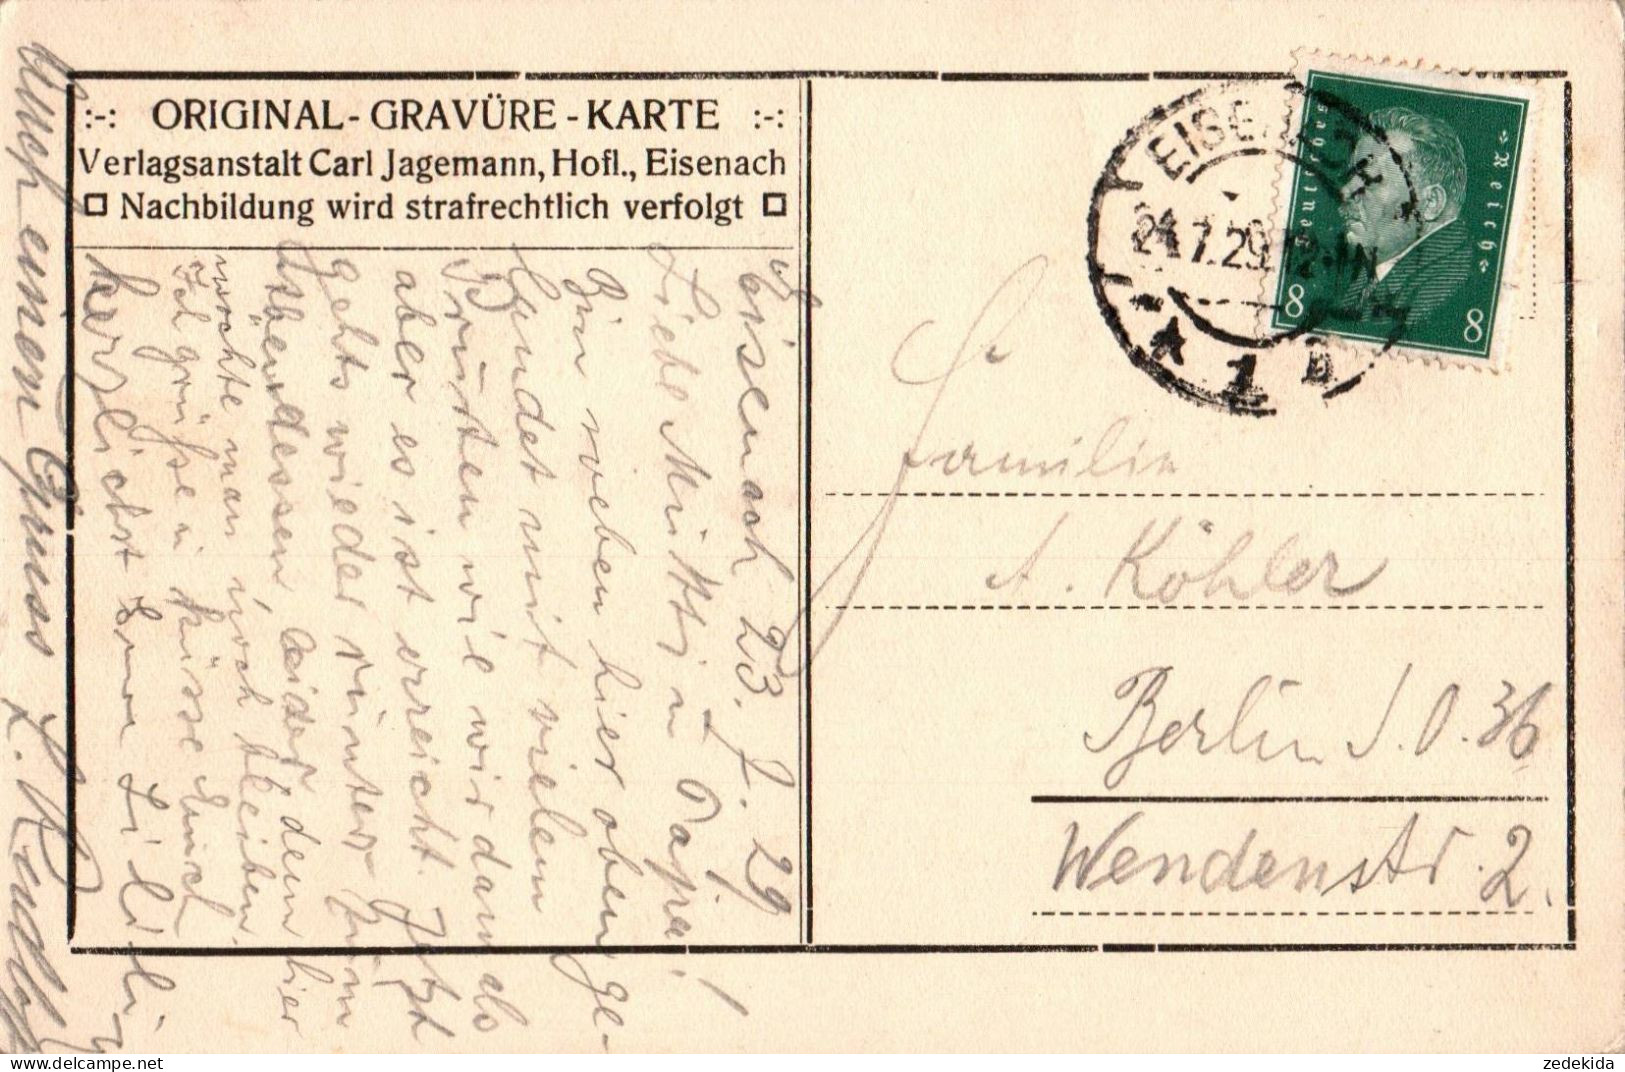 :-: ORIGINAL-GRAVÜRE-KARTE :-:
Verlagsanstalt Carl Jagemann, Hofl., Eisenach
Nachbildung wird strafrechtlich verfolgt
Eisenach 23. 7. 29
Liebe Mutti u Papa!
Bin soeben hier oben ge-
landet mit vielem
Prusten wie wir damals
aber es ist erreicht. Jetzt
gehts wieder runter zum
Abendessen, leider, denn hier
möchte man noch bleiben.
Ich grüße u küsse Euch
herzlichst Eure Lilly
Auch einen Gruss
EISENACH
24.7.29.12-1N
* 1
Deutsches Reich
8 8
Familie
A. Köhler
Berlin S.O. 36
Wendenstr. 2.
zedekida